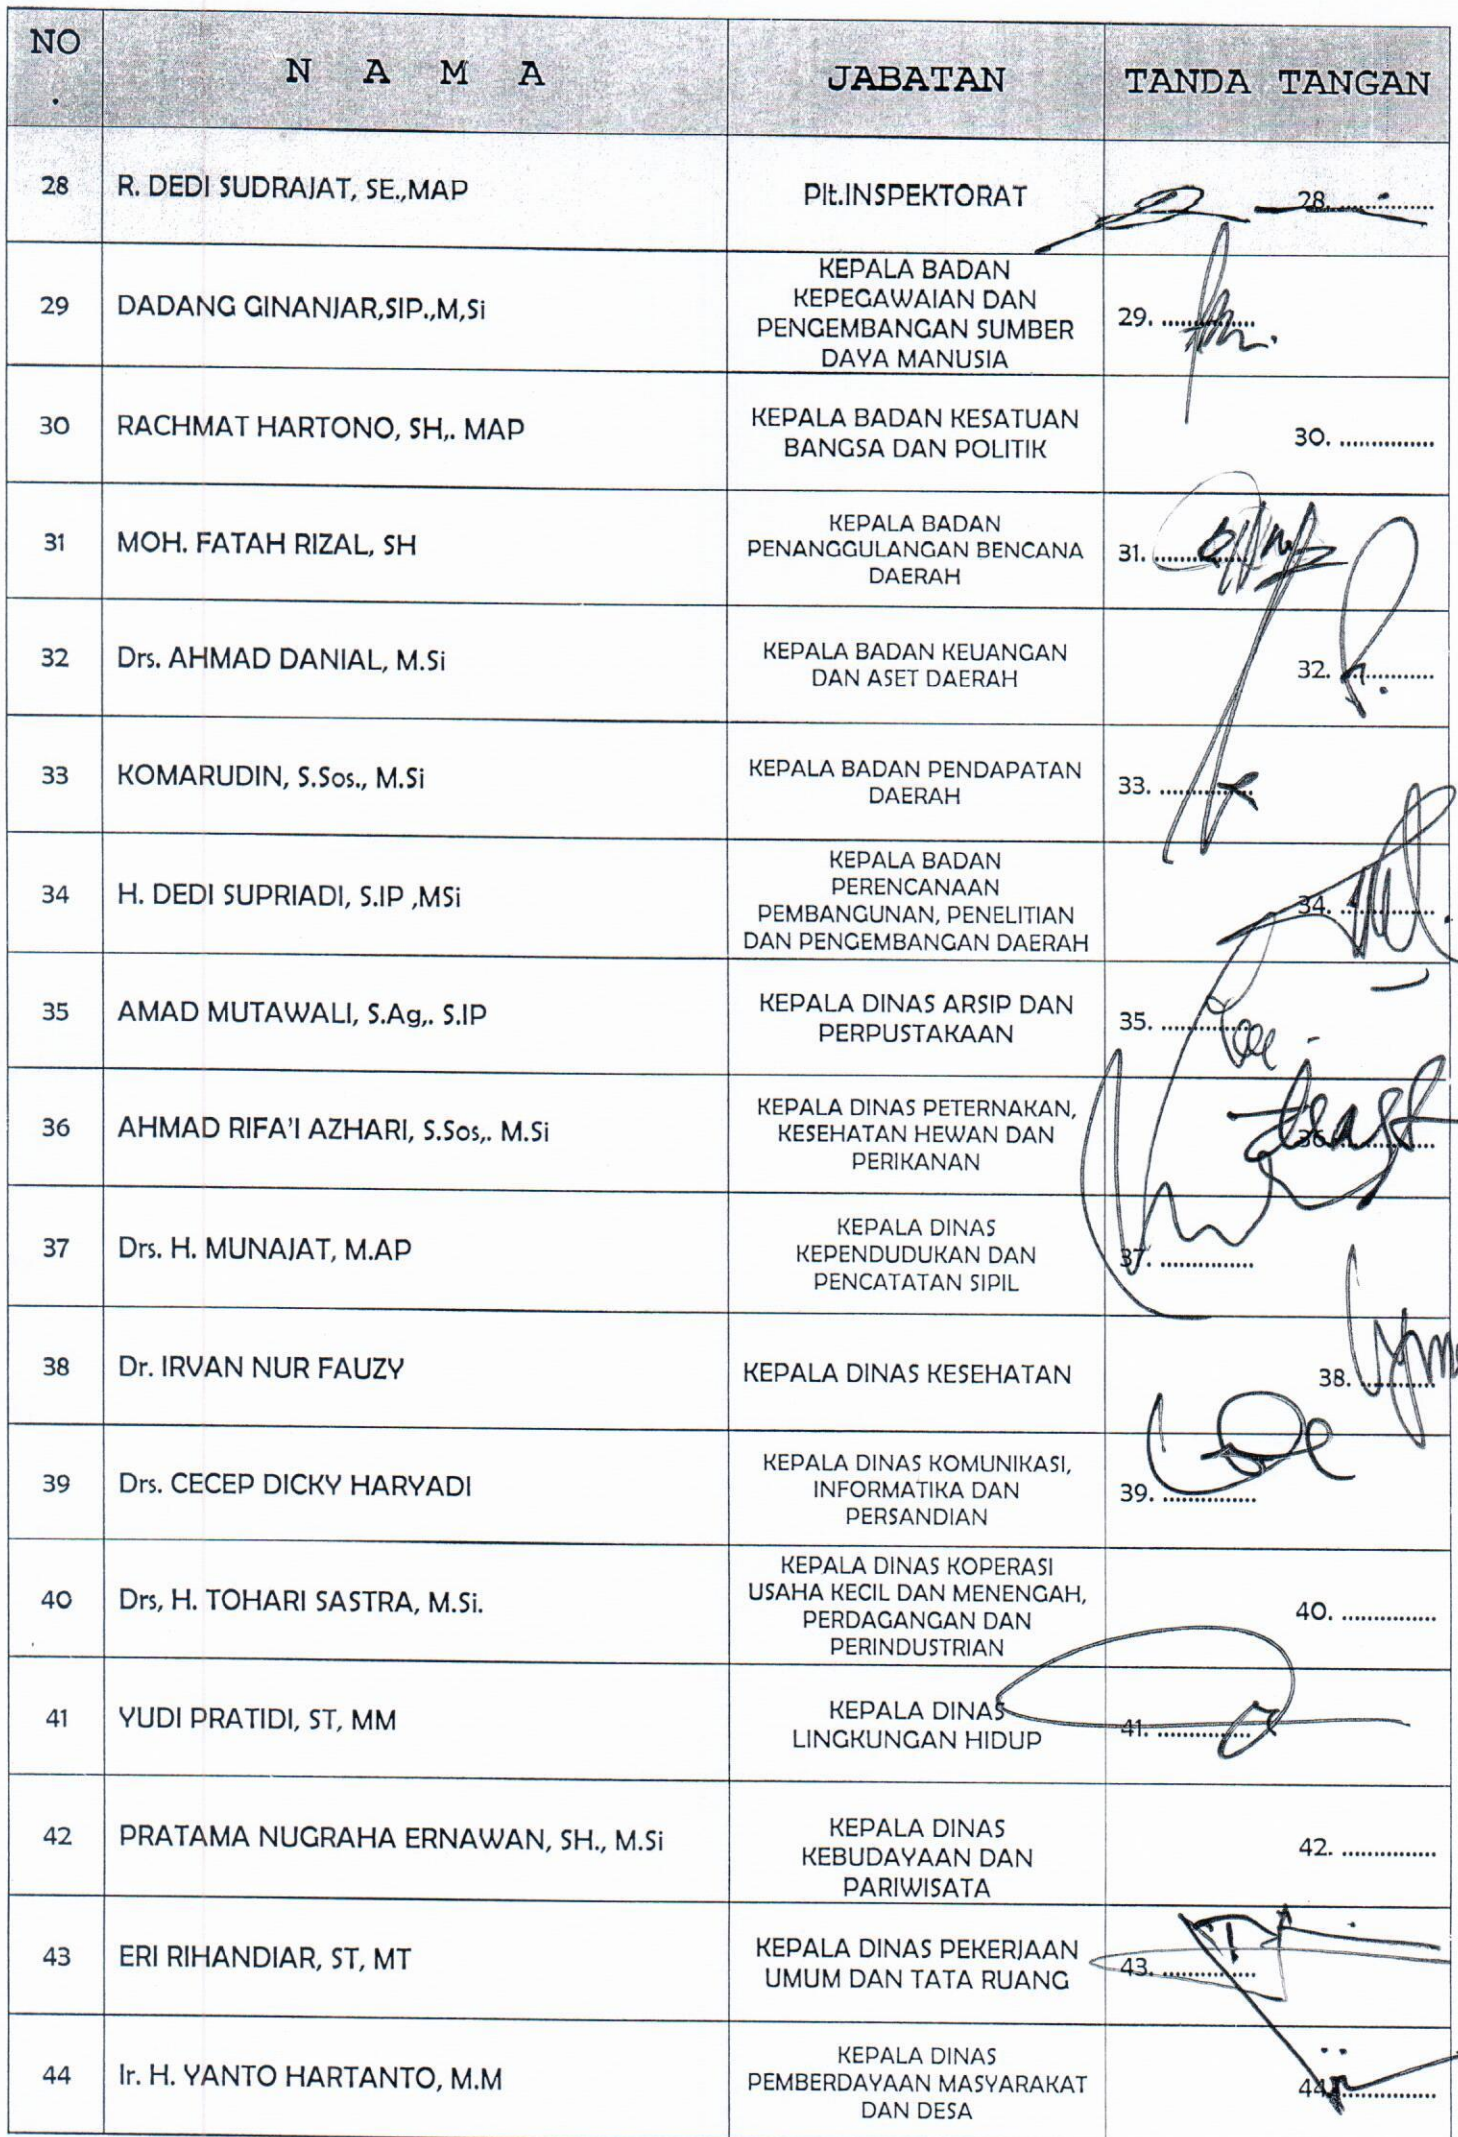 NO
.
N A M A
JABATAN
TANDA TANGAN
28
R. DEDI SUDRAJAT, SE.,MAP
Plt.INSPEKTORAT
28. ...............
29
DADANG GINANJAR,SIP.,M,Si
KEPALA BADAN
KEPEGAWAIAN DAN
PENGEMBANGAN SUMBER
DAYA MANUSIA
29. ...............
30
RACHMAT HARTONO, SH,. MAP
KEPALA BADAN KESATUAN
BANGSA DAN POLITIK
30. ...............
31
MOH. FATAH RIZAL, SH
KEPALA BADAN
PENANGGULANGAN BENCANA
DAERAH
31. ...............
32
Drs. AHMAD DANIAL, M.Si
KEPALA BADAN KEUANGAN
DAN ASET DAERAH
32. ...............
33
KOMARUDIN, S.Sos., M.Si
KEPALA BADAN PENDAPATAN
DAERAH
33. ...............
34
H. DEDI SUPRIADI, S.IP ,MSi
KEPALA BADAN
PERENCANAAN
PEMBANGUNAN, PENELITIAN
DAN PENGEMBANGAN DAERAH
34. ...............
35
AMAD MUTAWALI, S.Ag,. S.IP
KEPALA DINAS ARSIP DAN
PERPUSTAKAAN
35. ...............
36
AHMAD RIFA'I AZHARI, S.Sos,. M.Si
KEPALA DINAS PETERNAKAN,
KESEHATAN HEWAN DAN
PERIKANAN
36. ...............
37
Drs. H. MUNAJAT, M.AP
KEPALA DINAS
KEPENDUDUKAN DAN
PENCATATAN SIPIL
37. ...............
38
Dr. IRVAN NUR FAUZY
KEPALA DINAS KESEHATAN
38. ...............
39
Drs. CECEP DICKY HARYADI
KEPALA DINAS KOMUNIKASI,
INFORMATIKA DAN
PERSANDIAN
39. ...............
40
Drs, H. TOHARI SASTRA, M.Si.
KEPALA DINAS KOPERASI
USAHA KECIL DAN MENENGAH,
PERDAGANGAN DAN
PERINDUSTRIAN
40. ...............
41
YUDI PRATIDI, ST, MM
KEPALA DINAS
LINGKUNGAN HIDUP
41. ...............
42
PRATAMA NUGRAHA ERNAWAN, SH., M.Si
KEPALA DINAS
KEBUDAYAAN DAN
PARIWISATA
42. ...............
43
ERI RIHANDIAR, ST, MT
KEPALA DINAS PEKERJAAN
UMUM DAN TATA RUANG
43. ...............
44
Ir. H. YANTO HARTANTO, M.M
KEPALA DINAS
PEMBERDAYAAN MASYARAKAT
DAN DESA
44. ...............